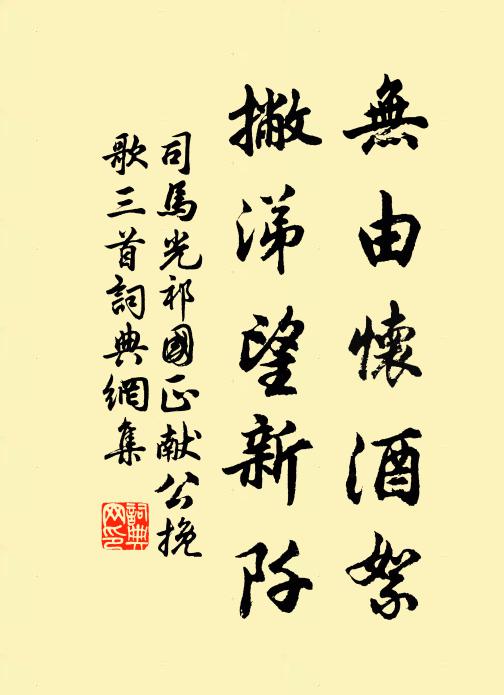 無由懷酒絮
撇涕望新阡
司馬光祁國正献公挽
歌三首詞典網集
詞典
网印